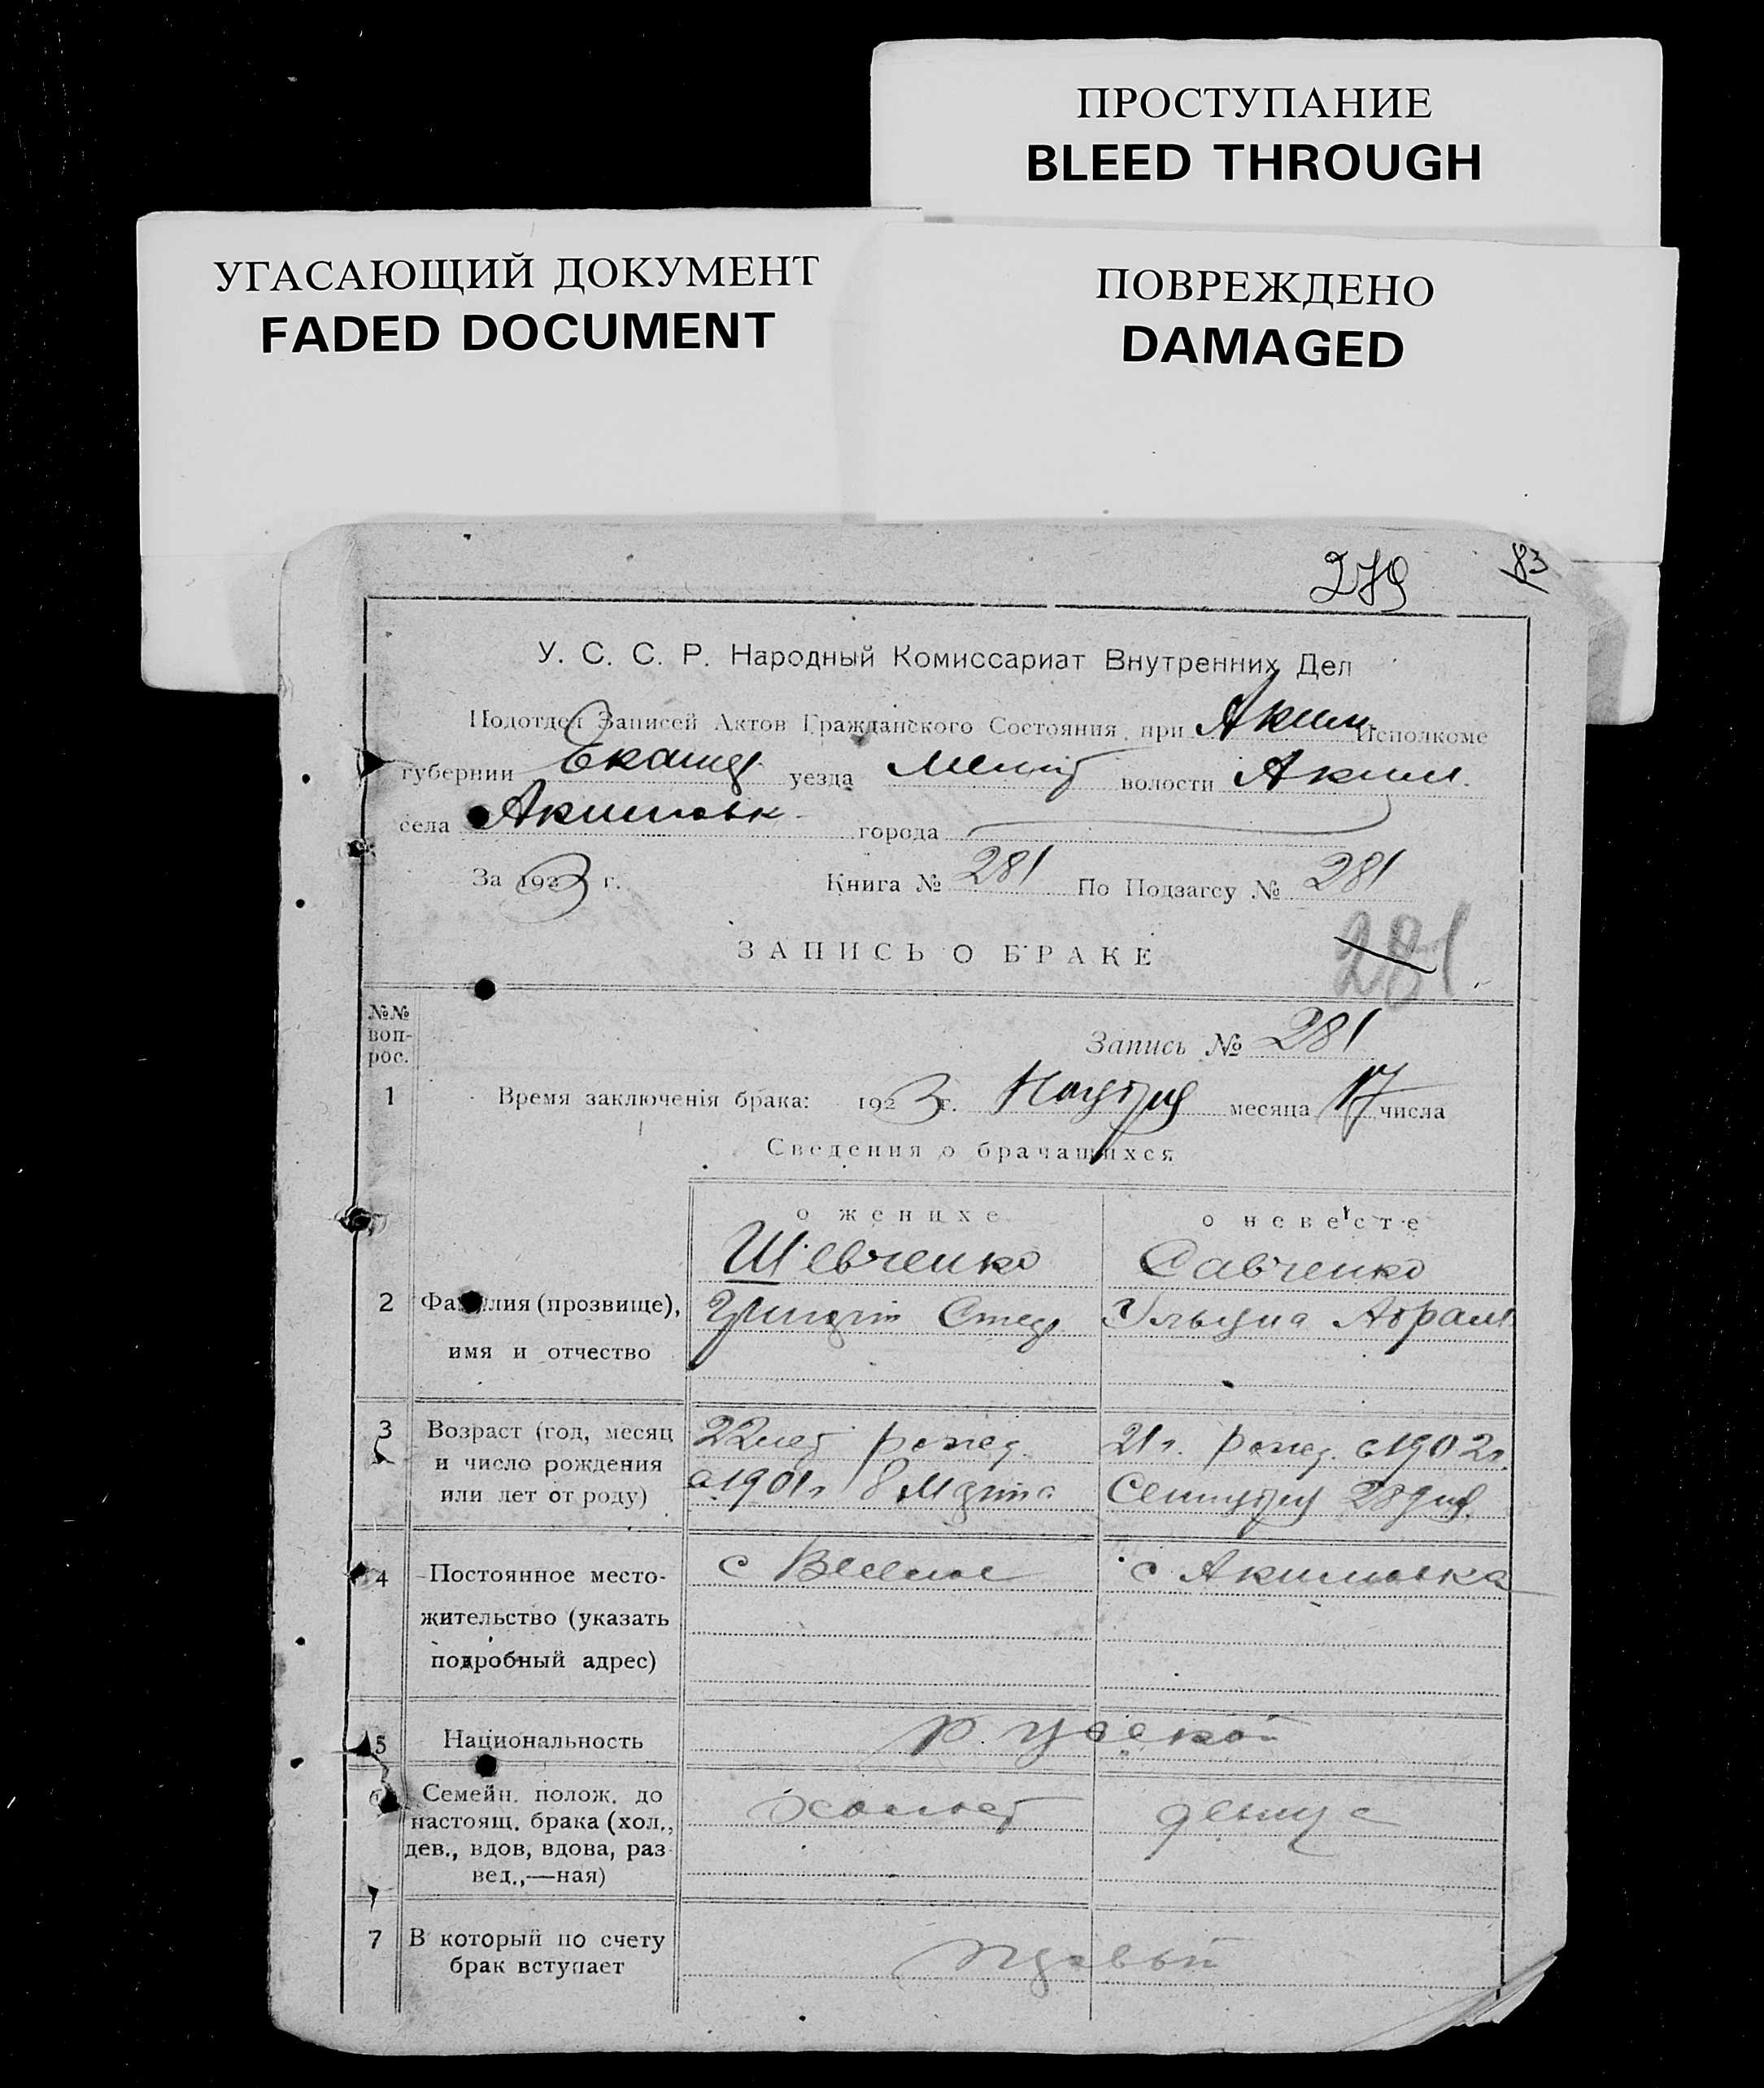 ПРОСТУПАНИЕ
BLEED THROUGH
УГАСАЮЩИЙ ДОКУМЕНТ
FADED DOCUMENT
ПОВРЕЖДЕНО
DAMAGED
279 83
У. С. С. Р. Народный Комиссариат Внутренних Дел
Подотдел Записей Актов Гражданского Состояния при Аким Исполкоме
губернии Екатер уезда Мелит волости Аким.
села Акимовк города
За 1923 г. Книга № 281 По Подзагсу № 281
ЗАПИСЬ О БРАКЕ 281
№№ воп-рос.
Запись № 281
1 Время заключенія брака: 1923 г. Ноября месяца 17 числа
Сведения о брачащихся
о женихе о невесте
Шевченко Савченко
2 Фамилия (прозвище), Стеф Ульяна Абрам
имя и отчество
3 Возраст (год, месяц 22 лет рожд. 21 г. рожд. с 1902 г.
и число рождения с 1901 г 8 Марта Сентября 28 дня
или лет от роду)
4 Постоянное место- с Веселое с Акимовка
жительство (указать
подробный адрес)
5 Национальность русской
Семейн. полож. до холост девица
настоящ. брака (хол.,
дев., вдов, вдова, раз
вед.,—ная)
7 В который по счету первый
брак вступает